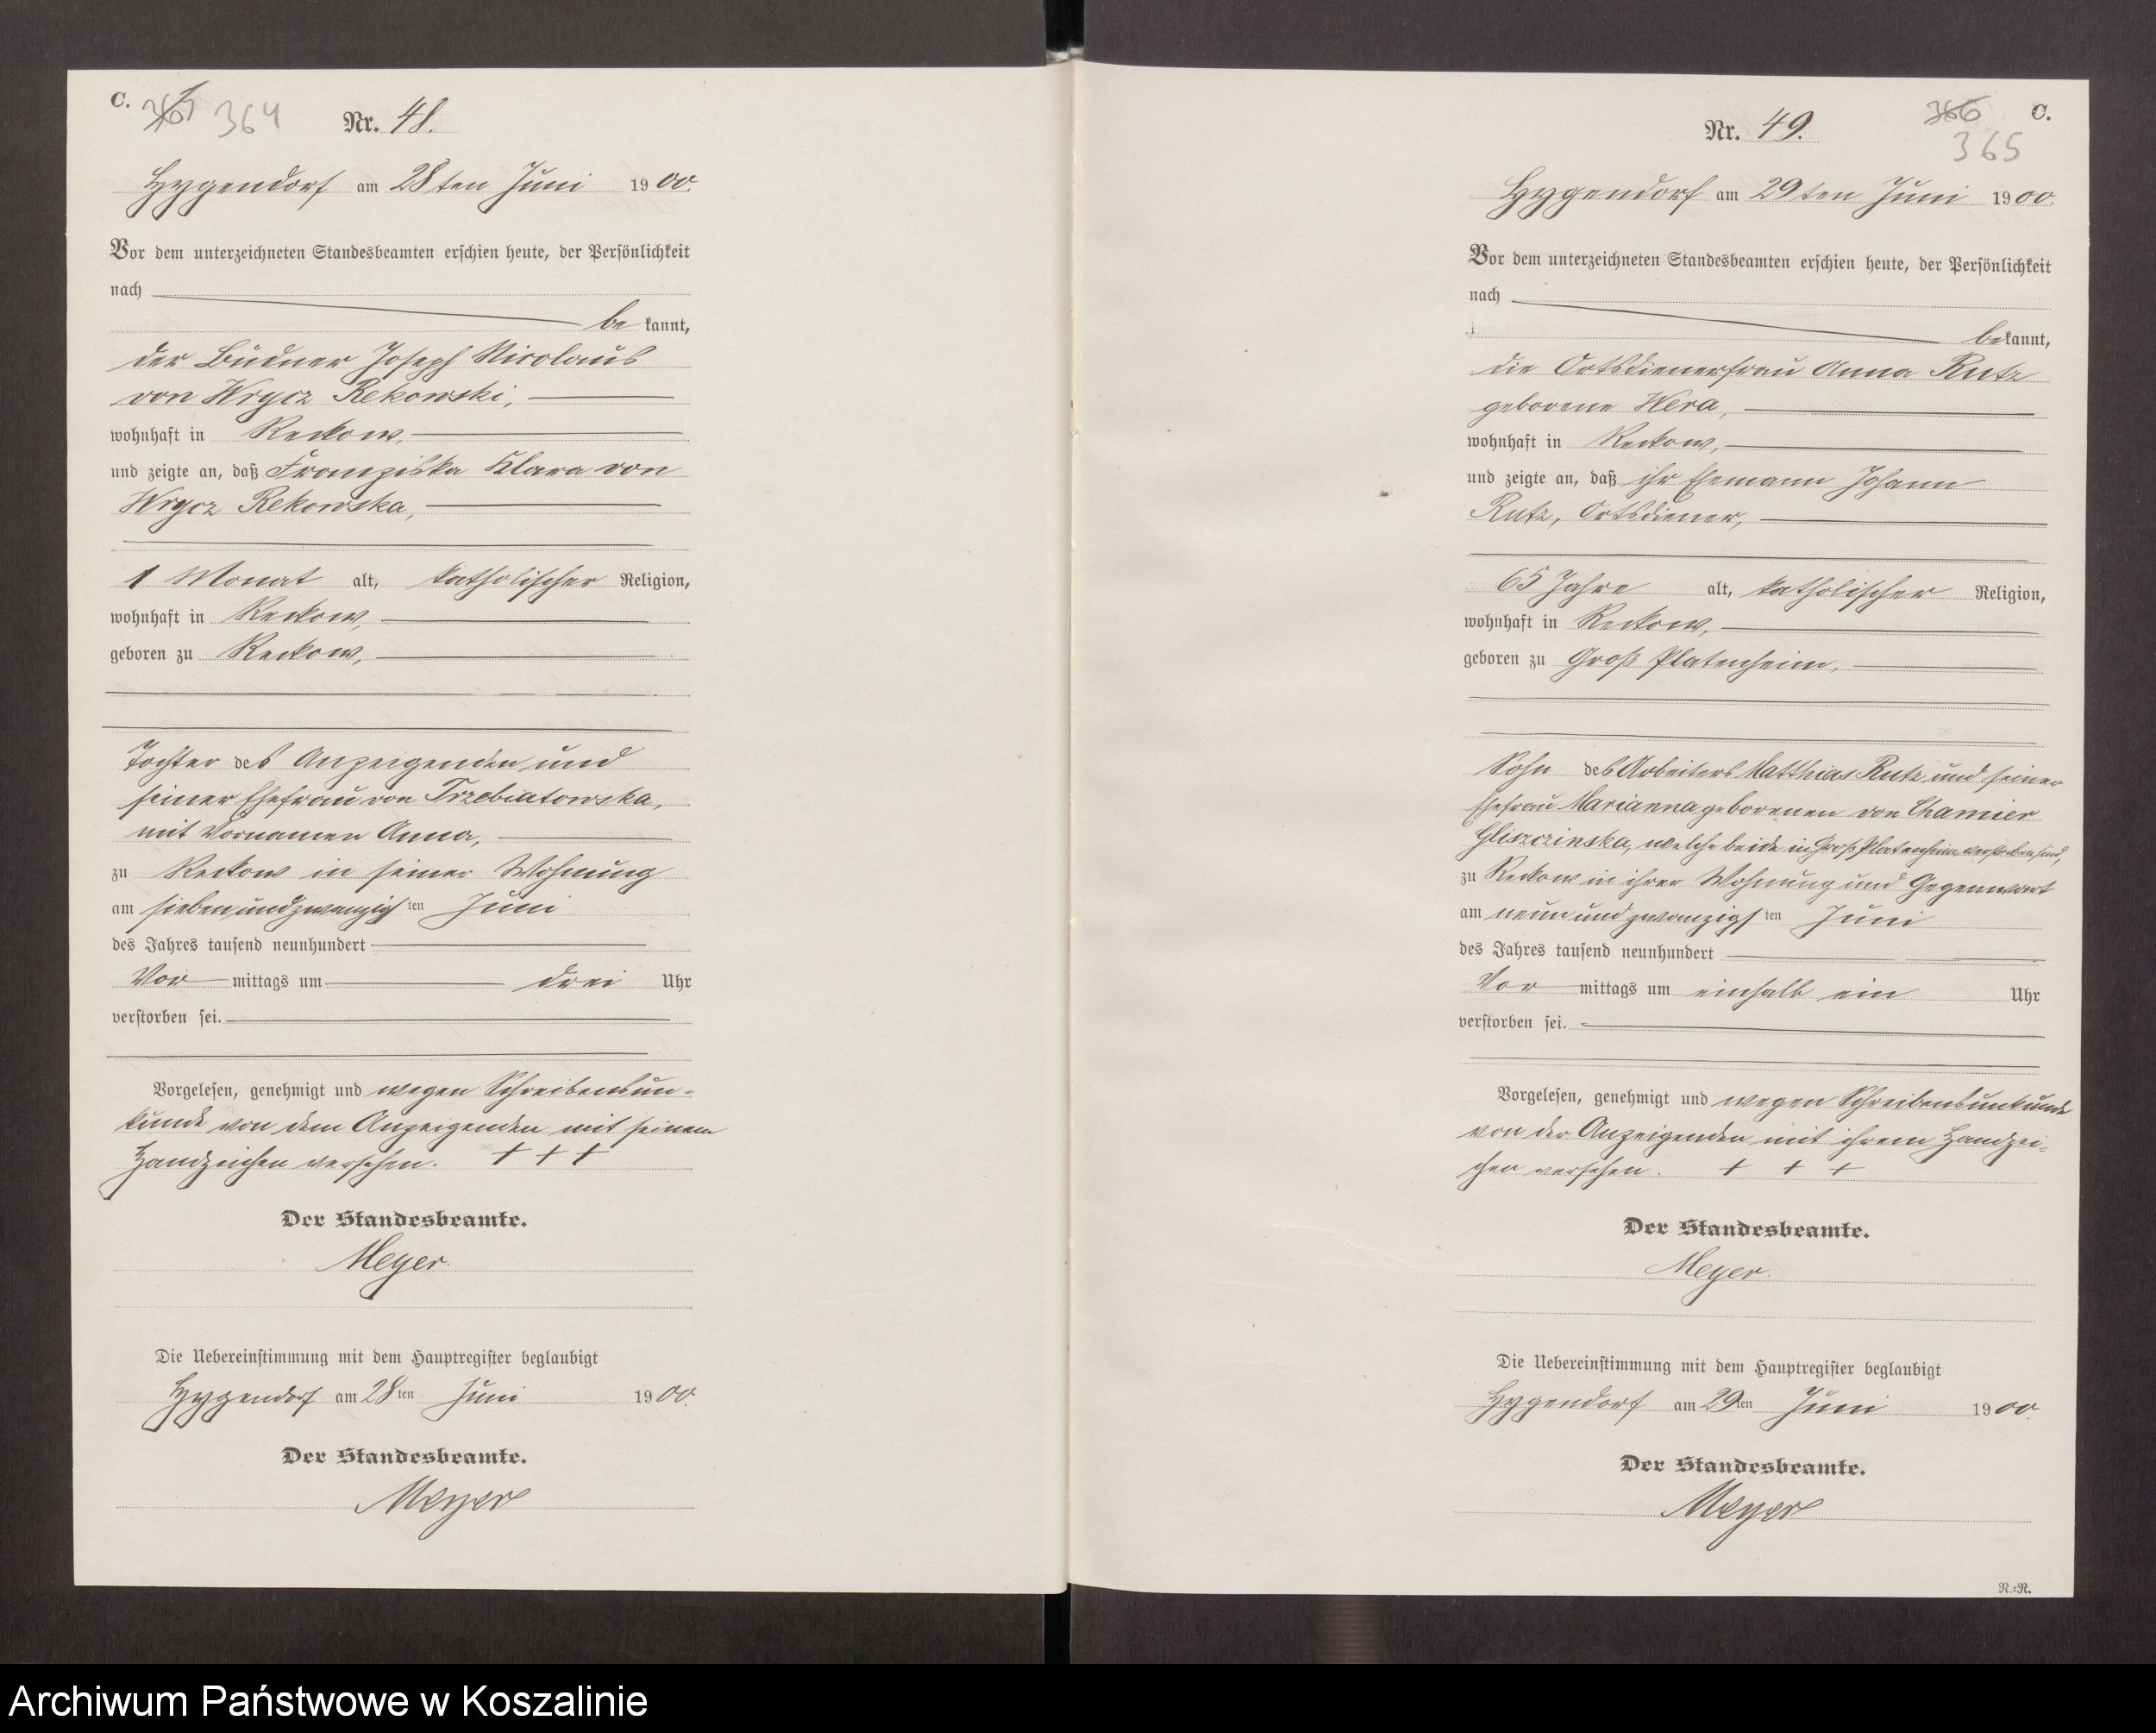 C. 367 364 Nr. 48.
Hygendorf am 28ten Juni 1900.
Vor dem unterzeichneten Standesbeamten erschien heute, der Persönlichkeit
nach
be kannt,
der Büdner Joseph Nicolaus
von Wrycz Rekowski,
wohnhaft in Reckow,
und zeigte an, daß Franziska Klara von
Wrycz Rekowska,
1 Monat alt, katholischer Religion,
wohnhaft in Reckow,
geboren zu Reckow,
Tochter des Anzeigenden und
seiner Ehefrau von Trzebiatowska,
mit Vornamen Anna,
zu Reckow in seiner Wohnung
am siebenundzwanzigsten Juni
des Jahres tausend neunhundert
Vor mittags um drei Uhr
verstorben sei.
Vorgelesen, genehmigt und wegen Schreibensun-
kunde von dem Anzeigenden mit seinem
Handzeichen versehen. + + +
Der Standesbeamte.
Meyer.
Die Uebereinstimmung mit dem Hauptregister beglaubigt
Hygendorf am 28ten Juni 1900.
Der Standesbeamte.
Meyer
Nr. 49. 366 C.
365
Hygendorf am 29ten Juni 1900.
Vor dem unterzeichneten Standesbeamten erschien heute, der Persönlichkeit
nach
bekannt,
die Ortsdienerfrau Anna Rutz
geborene Wera,
wohnhaft in Reckow,
und zeigte an, daß ihr Ehemann Johann
Rutz, Ortsdiener,
65 Jahre alt, katholischer Religion,
wohnhaft in Reckow,
geboren zu Groß Platenheim,
Sohn des Arbeiters Matthias Rutz und seiner
Ehefrau Marianna geborenen von Chamier
Gliszczinska, welche beide in Groß Platenheim verstorben sind,
zu Reckow in ihrer Wohnung und Gegenwart
am neunundzwanzigsten Juni
des Jahres tausend neunhundert
Vor mittags um einhalb ein Uhr
verstorben sei.
Vorgelesen, genehmigt und wegen Schreibensunkunde
von der Anzeigenden mit ihrem Handzei-
chen versehen. + + +
Der Standesbeamte.
Meyer.
Die Uebereinstimmung mit dem Hauptregister beglaubigt
Hygendorf am 29ten Juni 1900.
Der Standesbeamte.
Meyer
N.=R.
Archiwum Państwowe w Koszalinie